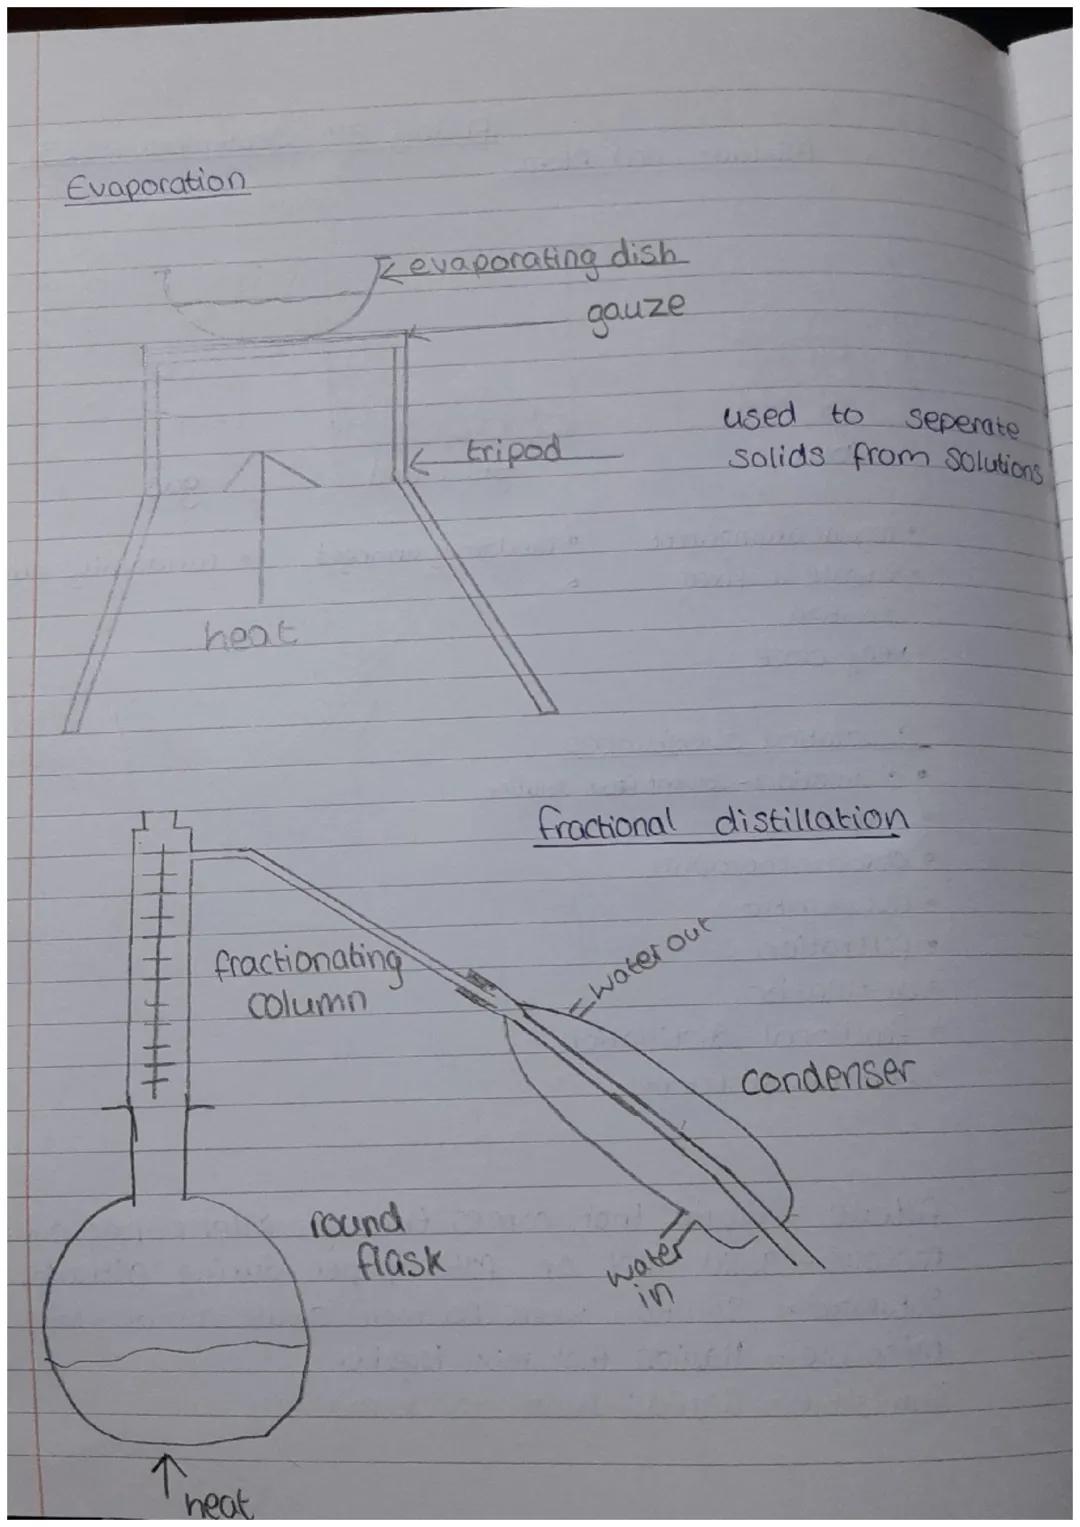 Evaporation
evaporating dish
gauze
used to seperate
solids from solutions
tripod
heat
fractional distillation
water out
fractionating
column
condenser
round
flask
water
in
heat